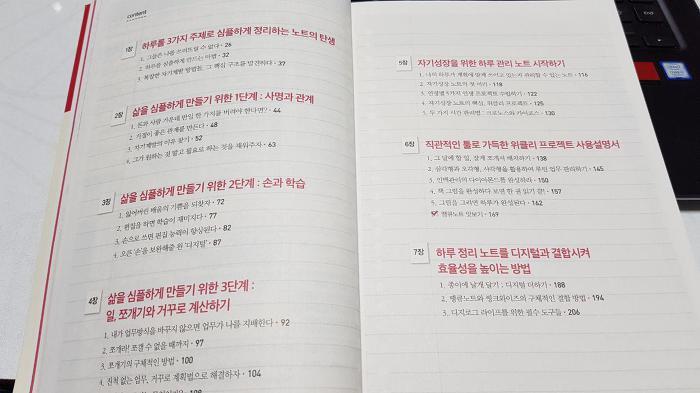 content
1장 하루를 3가지 주제로 심플하게 정리하는 노트의 탄생
1. 그들은 나를 쓰러뜨릴 수 없다 · 26
2. 하루를 심플하게 만드는 마법 · 32
3. 복잡한 자기계발 방법들, 그 핵심 구조를 발견하다 · 37
2장 삶을 심플하게 만들기 위한 1단계 : 사명과 관계
1. 돈과 사람 가운데 만일 한 가지를 버려야 한다면? · 44
2. 거절이 좋은 관계를 만든다 · 48
3. 자기계발의 이유 찾기 · 52
4. 그가 원하는 것 말고 필요로 하는 것을 채워주자 · 63
3장 삶을 심플하게 만들기 위한 2단계 : 손과 학습
1. 잃어버린 배움의 기쁨을 되찾자 · 72
2. 편집을 하면 학습이 재미지다 · 77
3. 손으로 쓰면 편집 능력이 향상된다 · 82
4. 오른 '손'을 보완해줄 왼 '디지털' · 87
4장 삶을 심플하게 만들기 위한 3단계 :
일, 쪼개기와 거꾸로 계산하기
1. 내가 업무방식을 바꾸지 않으면 업무가 나를 지배한다 · 92
2. 쪼개라! 쪼갤 수 없을 때까지 · 97
3. 쪼개기의 구체적인 방법 · 100
4. 진척 없는 업무, 거꾸로 계획법으로 해결하자 · 104
5장 자기성장을 위한 하루 관리 노트 시작하기
1. 나의 하루가 계획에 맞게 쓰이고 있는지 관리할 수 있는 노트 · 116
2. 자기성장 노트의 첫 머리 · 118
3. 인생별 3가지 인생 프로젝트 수립하기 · 122
4. 자기성장 노트의 핵심, 위클리 프로젝트 · 125
5. 두 가지 시간 관리법 : 크로노스와 카이로스 · 130
6장 직관적인 툴로 가득한 위클리 프로젝트 사용설명서
1. 그 날에 할 일, 잘게 쪼개서 배치하기 · 138
2. 삼각형과 오각형, 사각형을 활용하여 루틴 업무 관리하기 · 145
3. 인맥관리의 다이아몬드를 완성하라 · 150
4. 책 그림을 완성하다 보면 한 권 읽기 끝! · 157
5. 그림을 그리면 하루가 완성된다 · 162
땡큐노트 맛보기 · 169
7장 하루 정리 노트를 디지털과 결합시켜
효율성을 높이는 방법
1. 종이에 날개 달기 : 디지털 더하기 · 188
2. 땡큐노트와 씽크와이즈의 구체적인 결합 방법 · 194
3. 디지로그 라이프를 위한 필수 도구들 · 206